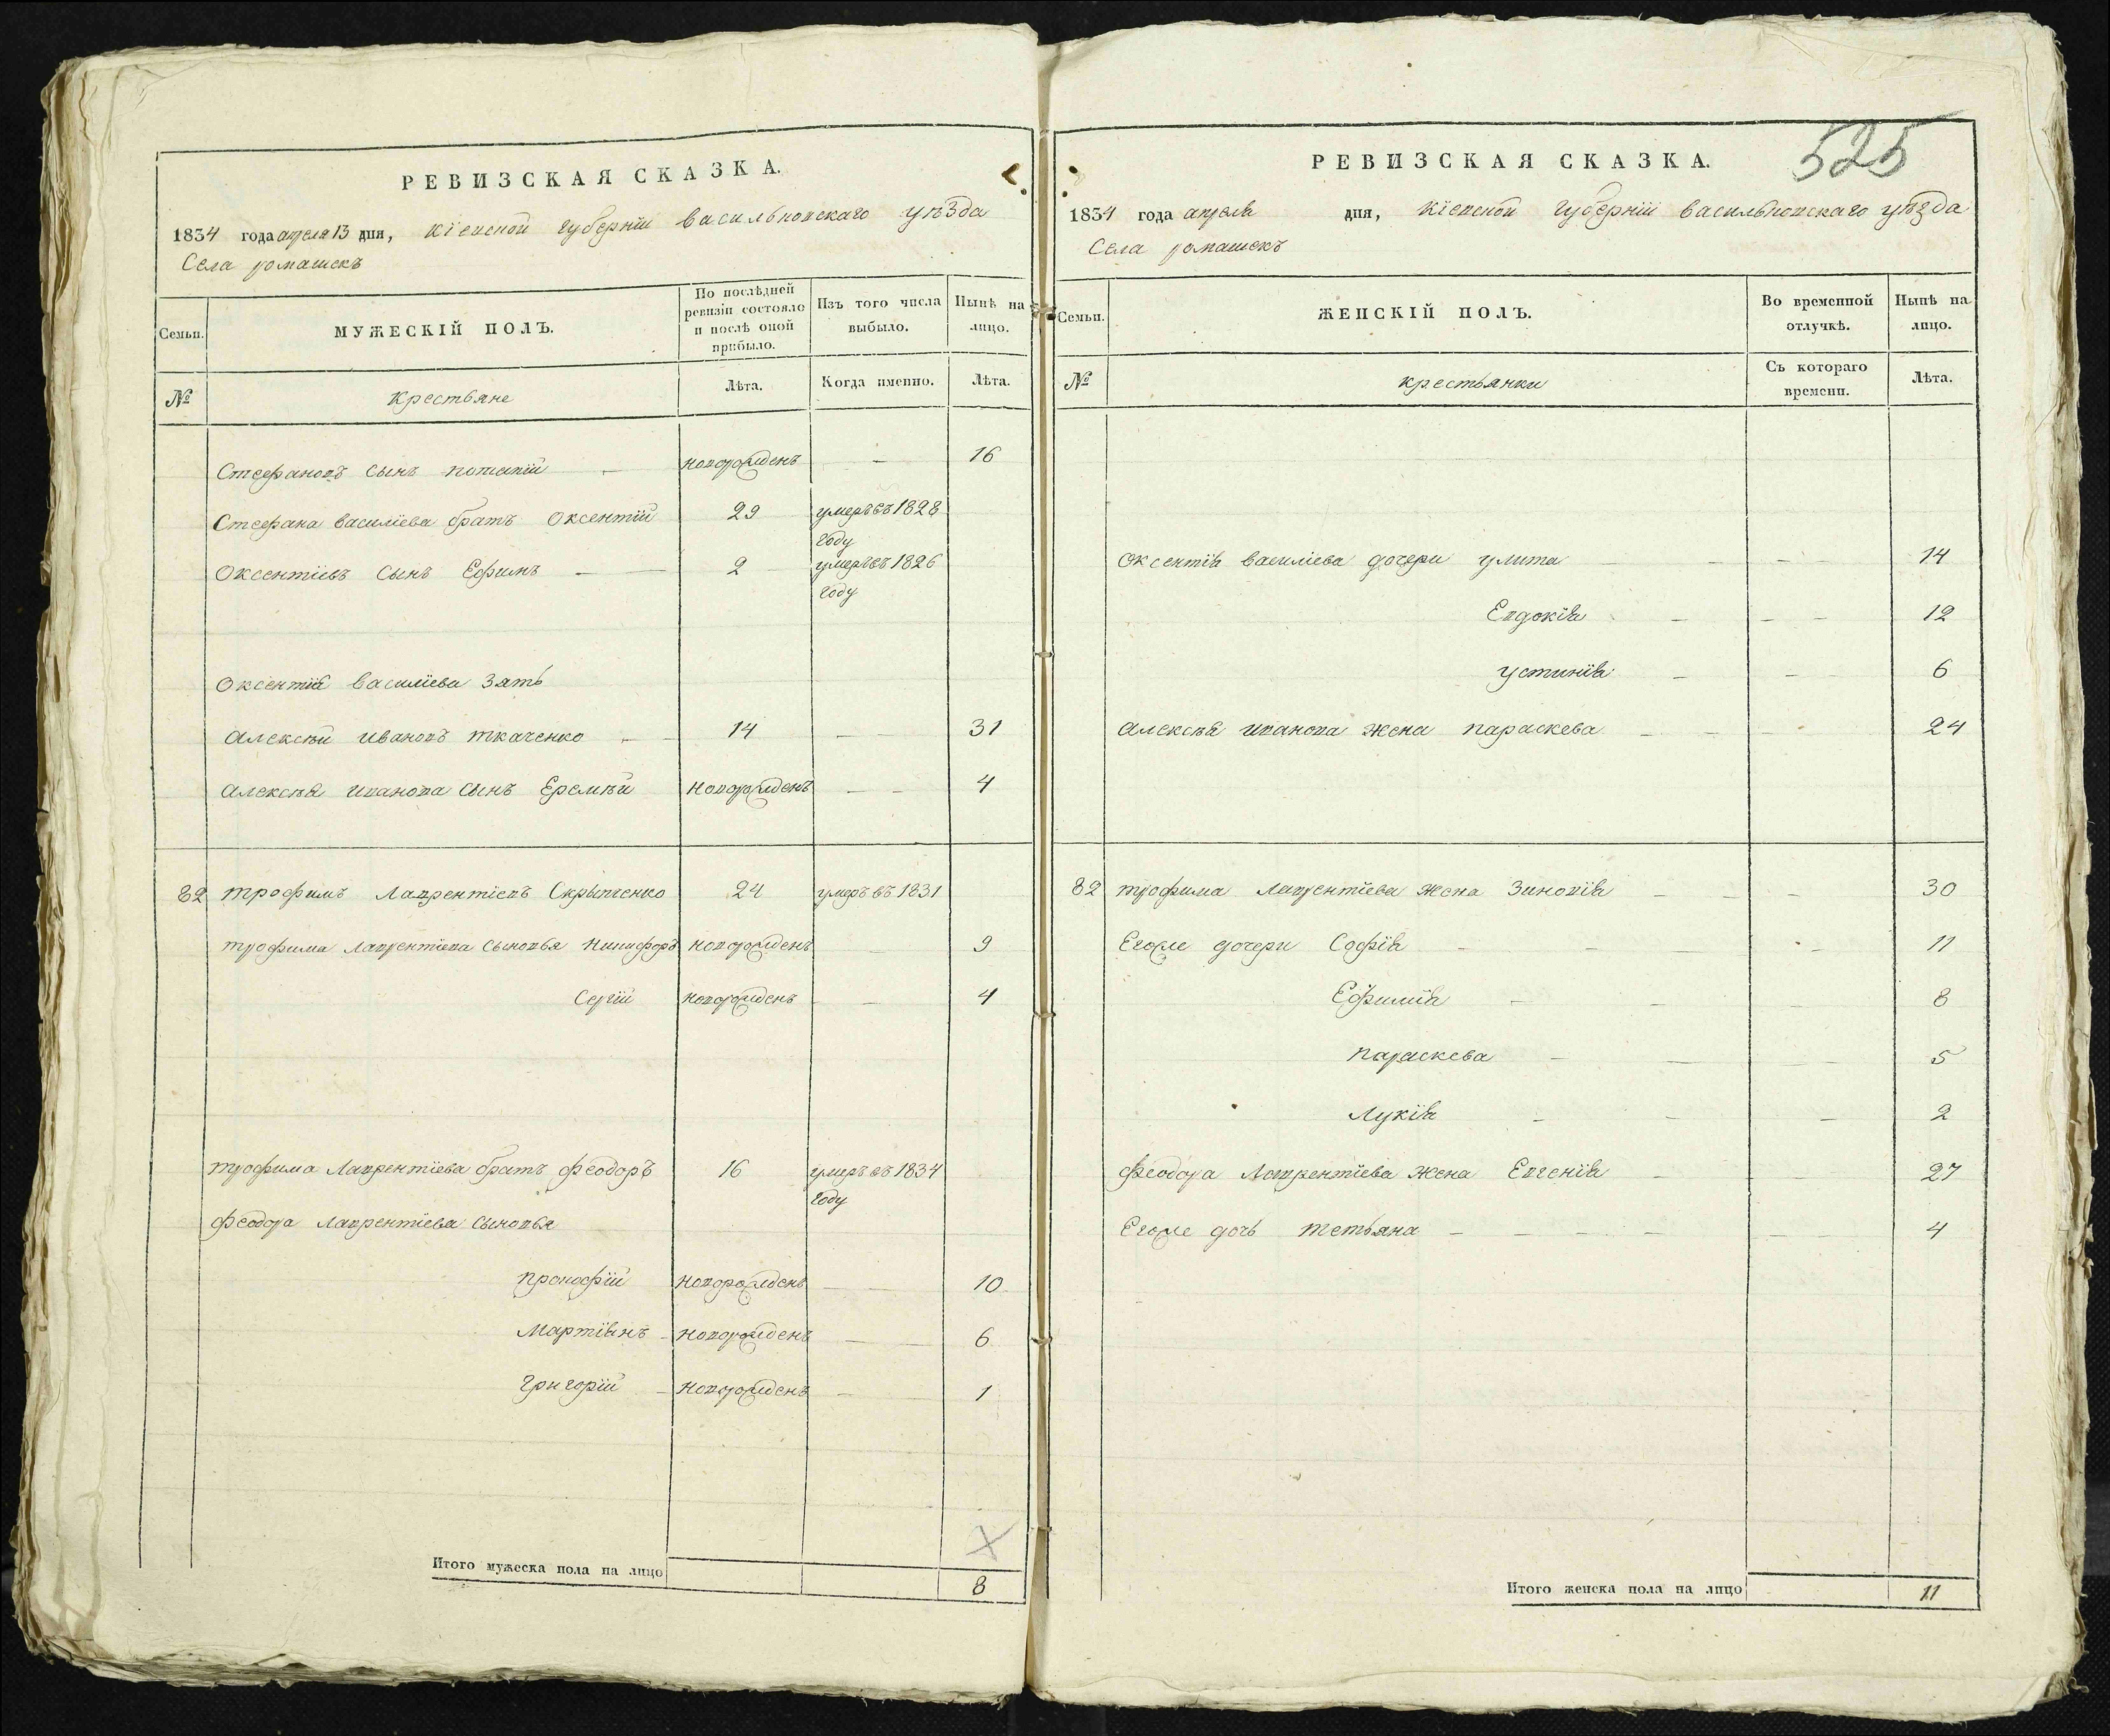 РЕВИЗСКАЯ СКАЗКА.
1834 года апреля 13 дня, Кіевской Губерніи Васильковскаго уѣзда
Села ромашекъ
Семьи.
МУЖЕСКІЙ ПОЛЪ.
По послѣдней ревизіи состояло и послѣ оной прибыло.
Изъ того числа выбыло.
Нынѣ на лицо.
№
Крестьяне
Лѣта.
Когда именно.
Лѣта.
Стефановъ сынъ потапій — новорожденъ — 16
Стефана василіева братъ Оксентій 29 умеръ въ 1828
году
Оксентіевъ сынъ Ефимъ — — 2 умеръ въ 1826
году
Оксентія василіева зять
алексѣй ивановъ ткаченко — — 14 — 31
алексѣя иванова сынъ Еремѣй новорожденъ — — 4
82 трофимъ Лаврентіевъ Скрыпченко 24 умеръ въ 1831
трофима лаврентіева сыновья Никифоръ новорожденъ — 9
Сергій новорожденъ — — 4
трофима Лаврентіева братъ феодоръ 16 умеръ въ 1834
году
феодора лаврентіева сыновья
прокофій новорожденъ — — 10
Мартінъ — новорожденъ — 6
григорій — новорожденъ — 1
Итого мужеска пола на лицо
8
525
РЕВИЗСКАЯ СКАЗКА.
1834 года апреля дня, Кіевской Губерніи васильковскаго уѣзда
Села ромашекъ
Семьи.
ЖЕНСКІЙ ПОЛЪ.
Во временной отлучкѣ.
Нынѣ на лицо.
№
крестьянки
Съ котораго времени.
Лѣта.
Оксентія василіева дочери улита — — — — 14
Евдокія — — — 12
устинія — — 6
алексѣя иванова жена параскева — — — 24
82 трофима лаврентіева жена зиновія — — — 30
Егоже дочери Софія — — — — 11
Ефимія — — — — 8
параскева — — — — 5
Лукія — — — 2
феодора Лаврентіева жена Евгенія — — — — 27
Егоже дочь тетьяна — — — — — — 4
Итого женска пола на лицо
11